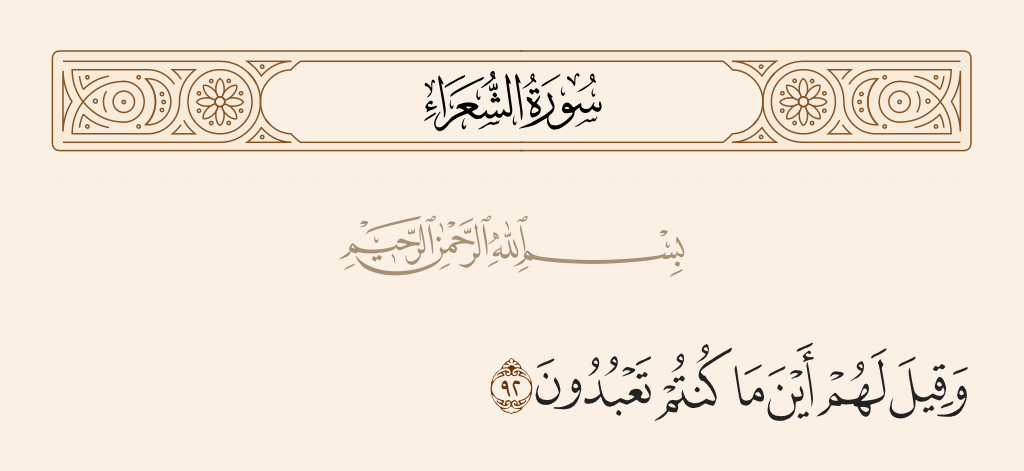 سُورَةُ الشُّعَرَاءِ
بِسْمِ ٱللَّهِ ٱلرَّحْمَٰنِ ٱلرَّحِيمِ
وَقِيلَ لَهُمْ أَيْنَ مَا كُنتُمْ تَعْبُدُونَ ٩٢